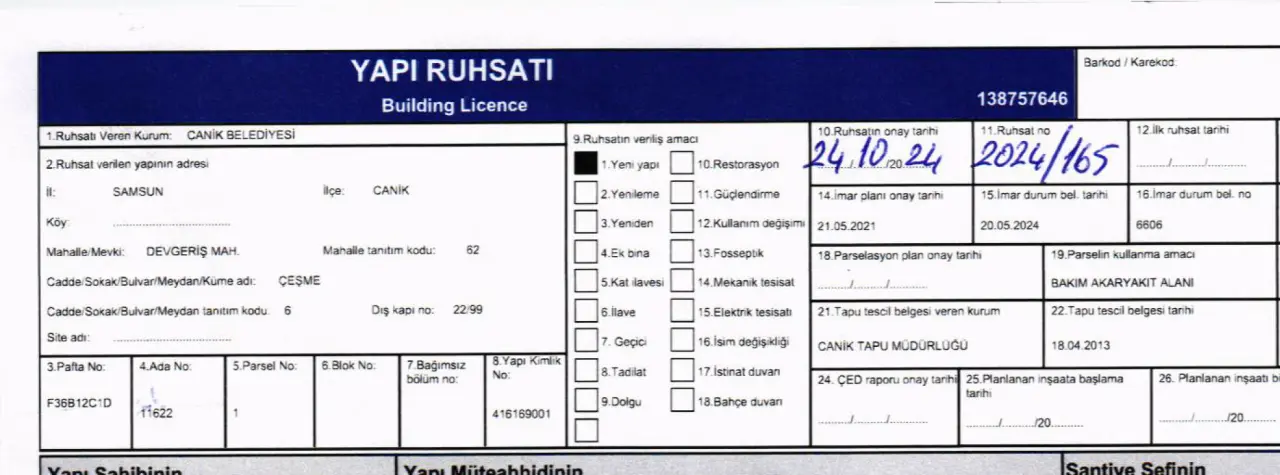 YAPI RUHSATI
Building Licence
138757646
Barkod / Karekod:
1.Ruhsatı Veren Kurum: CANİK BELEDİYESİ
2.Ruhsat verilen yapının adresi
İl: SAMSUN İlçe: CANİK
Köy: ........................................
Mahalle/Mevki: DEVGERİŞ MAH. Mahalle tanıtım kodu: 62
Cadde/Sokak/Bulvar/Meydan/Küme adı: ÇEŞME
Cadde/Sokak/Bulvar/Meydan tanıtım kodu: 6 Dış kapı no: 22/99
Site adı: ........................................
3.Pafta No: F36B12C1D
4.Ada No: 11622
5.Parsel No: 1
6.Blok No:
7.Bağımsız bölüm no:
8.Yapı Kimlik No: 416169001
9.Ruhsatın veriliş amacı
1.Yeni yapı 10.Restorasyon
2.Yenileme 11.Güçlendirme
3.Yeniden 12.Kullanım değişimi
4.Ek bina 13.Fosseptik
5.Kat ilavesi 14.Mekanik tesisat
6.İlave 15.Elektrik tesisatı
7. Geçici 16.İsim değişikliği
8.Tadilat 17.İstinat duvarı
9.Dolgu 18.Bahçe duvarı
10.Ruhsatın onay tarihi
24/10/2024
11.Ruhsat no
2024/165
12.İlk ruhsat tarihi
........./........./............
14.İmar planı onay tarihi
21.05.2021
15.İmar durum bel. tarihi
20.05.2024
16.İmar durum bel. no
6606
18.Parselasyon plan onay tarihi
........./........./............
19.Parselin kullanma amacı
BAKIM AKARYAKIT ALANI
21.Tapu tescil belgesi veren kurum
CANİK TAPU MÜDÜRLÜĞÜ
22.Tapu tescil belgesi tarihi
18.04.2013
24. ÇED raporu onay tarihi
........./........./............
25.Planlanan inşaata başlama tarihi
........./........./20............
26. Planlanan inşaatı
........./........./20............
Yapı Sahibinin
Yapı Müteahhidinin
Şantiye Şefinin